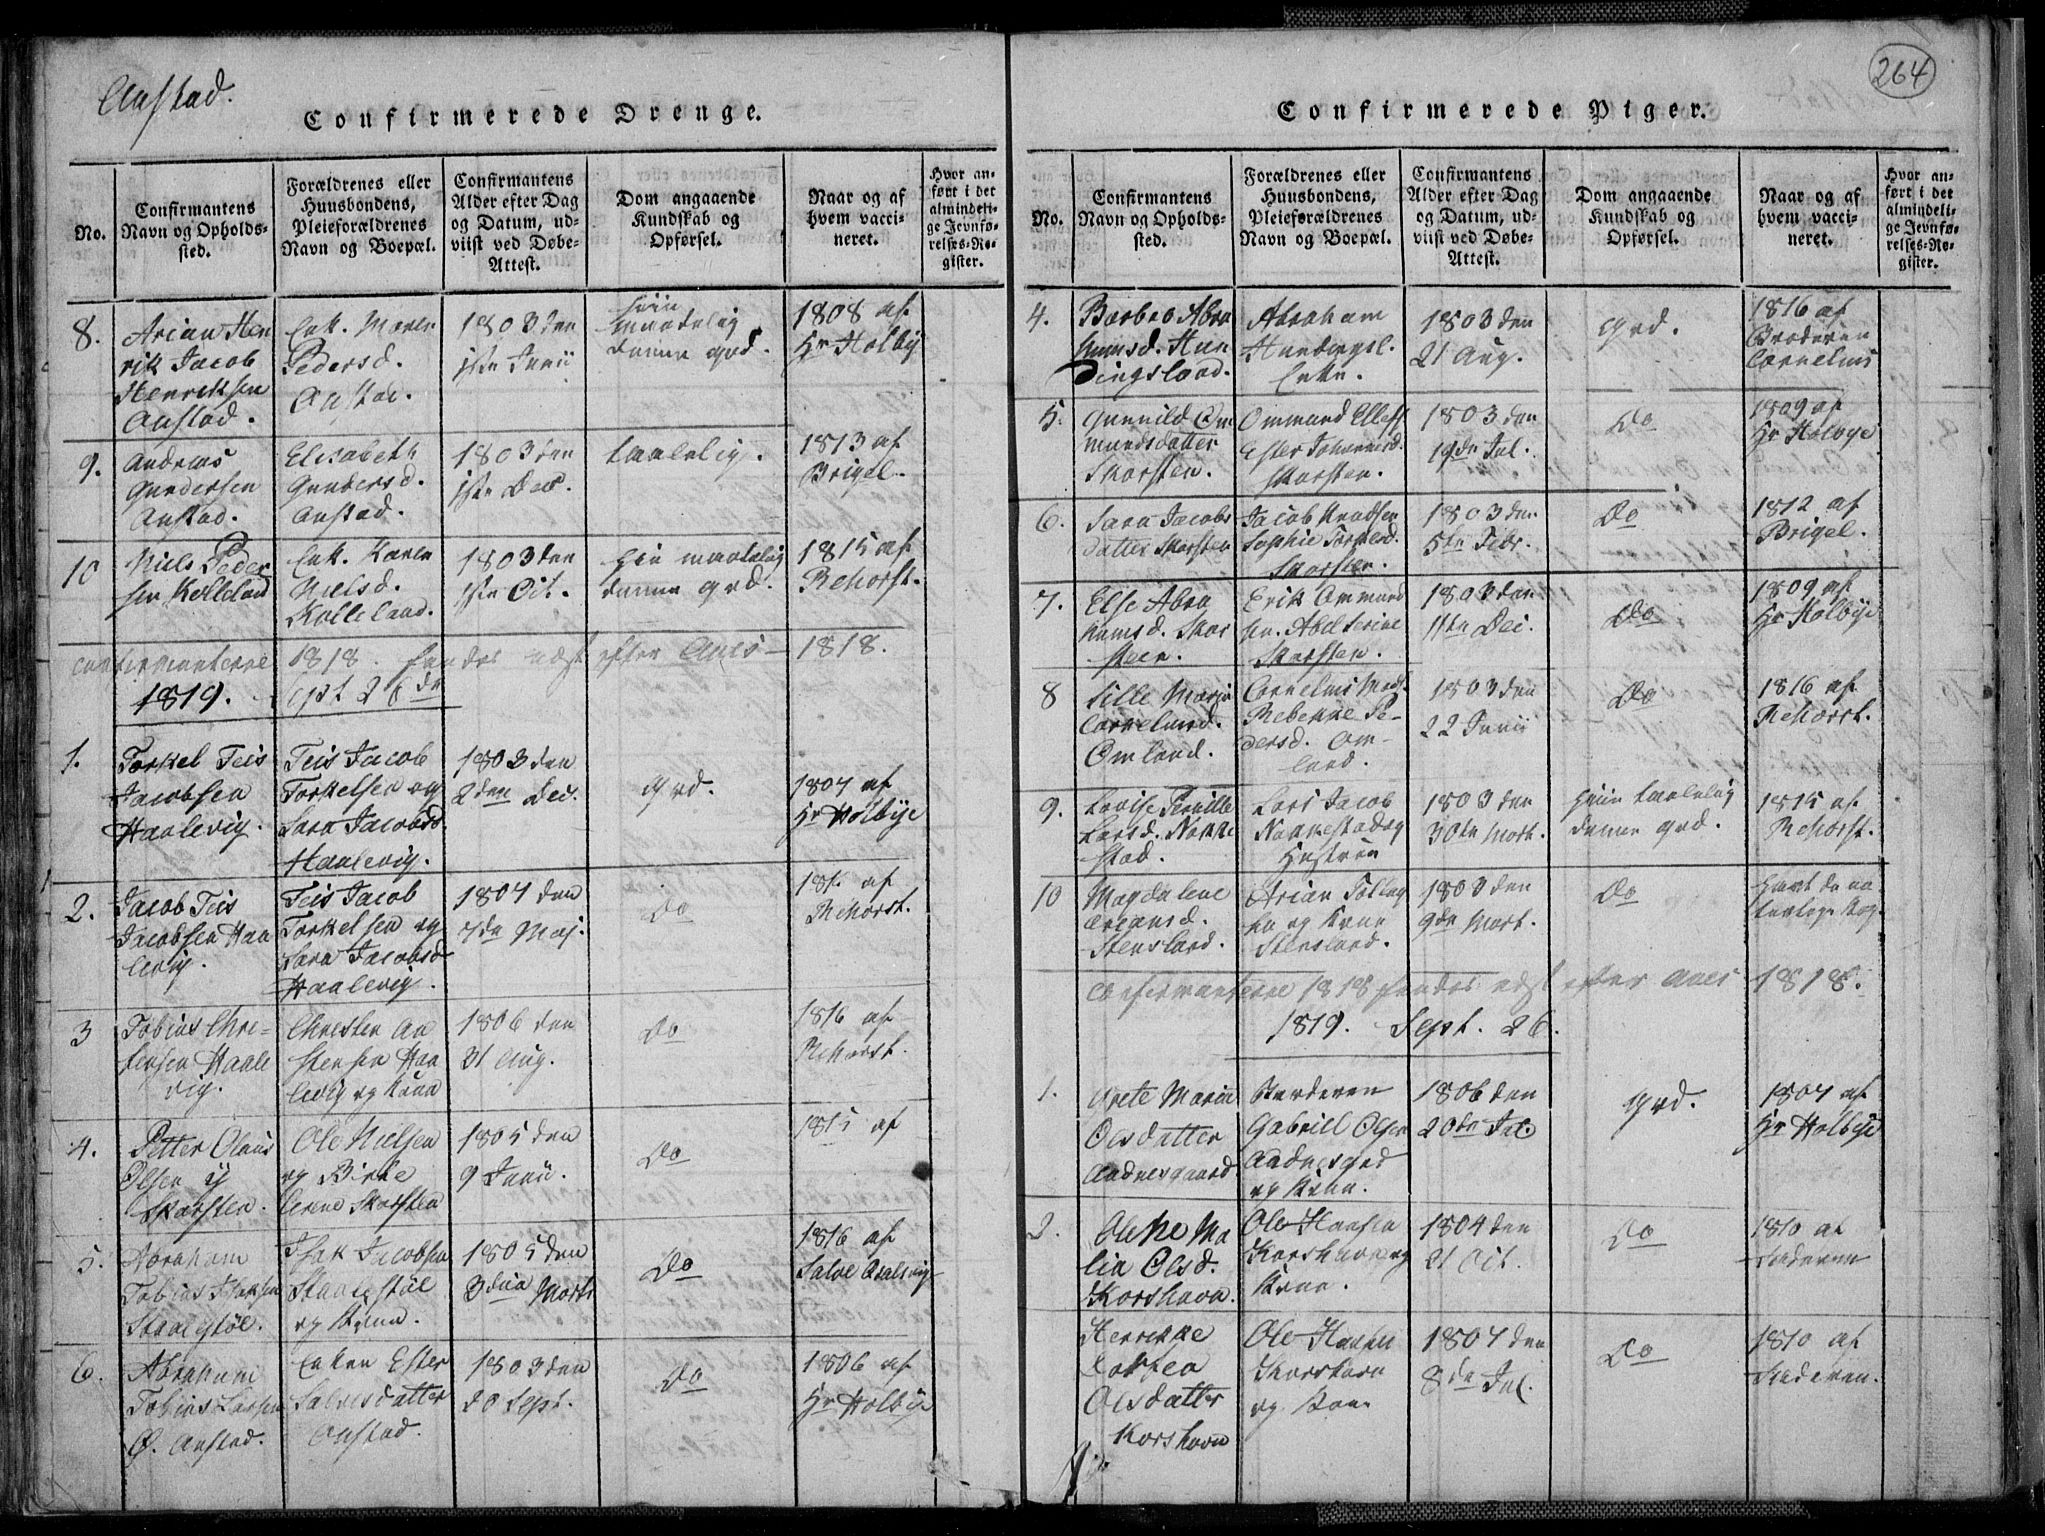 264
Austad.
Confirmerede Drenge.
No.
Confirmantens
Navn og Opholds-
sted.
Forældrenes eller
Huusbondens,
Pleieforældrenes
Navn og Boepæl.
Confirmantens
Alder efter Dag
og Datum, ud-
viist ved Døbe-
Attest.
Dom angaaende
Kundskab og
Opførsel.
Naar og af
hvem vacci-
neret.
Hvor an-
ført i det
almindeli-
ge Jevnfø-
relses-Re-
gister.
8.
Arian Hen
rik Jacob
Henriksen
Austad.
Enk. Maren
Pedersd.
Austad.
1803 den
1ste Junii
maadelig
denne god.
1808 af
Hr Holbye
9.
Andreas
Gundersen
Austad.
Elisabeth
Gundersd.
Austad.
1803 den
1ste Dec.
taalelig.
1813 af
Brigel.
10
Niels Peder
sen Kolleland
Enk. Karen
Nielsd.
Kolleland.
1803 den
1ste Oct.
hiin maadelig
denne god.
1815 af
Rehorst.
Confirmanterne 1818 findes næst efter Anes 1818.
1819. Sept 26de
1.
Torkel Teis
Jacobsen
Haalevig.
Teis Jacob
Torkelsen og
Sara Jacobsd.
Haalevig.
1803 den
2den Dec.
god.
1807 af
Hr Holbye
2.
Jacob Teis
Jacobsen Haa
levig.
Teis Jacob
Torkelsen og
Sara Jacobsd
Haalevig.
1807 den
7de Maj.
Do
af
Rehorst.
3
Tobias Chri-
stensen Haale
vig.
Christen
Haa
levig og Kone
1806 den
31 Aug.
Do
1816 af
Rehorst.
4.
Petter Olaus
Olsen
Skarsten.
Ole Nielsen
og Birte
Skarsten
1805 den
9 Junii.
Do
1815 af
5.
Abraham
Tobias Isaksen
Staalestøl.
Isak Jacobsen
Staalestøl
og Kone.
1805 den
3die Marts
Do
1816 af
Salve
6.
Abraham
Tobias Larsen
Ø. Austad.
Enken Ester
Salvesdatter
Austad.
1803 den
20 Sept.
Do
1806 af
Hr Holbye
Confirmerede Piger.
No.
Confirmantens
Navn og Opholds-
sted.
Forældrenes eller
Huusbondens,
Pleieforældrenes
Navn og Boepæl.
Confirmantens
Alder efter Dag
og Datum, ud-
viist ved Døbe-
Attest.
Dom angaaende
Kundskab og
Opførsel.
Naar og af
hvem vacci-
neret.
Hvor an-
ført i det
almindeli-
ge Jevnfø-
relses-Re-
gister.
4.
Barbro Abra
hamsd. Hun
dingsland.
Abraham
Hundingsl.
Enke.
1803 den
21 Aug.
god.
1816 af
Broderen
Cornelius
5.
Gunnild Om
mundsdatter
Skarsten.
Ommund Ellefs.
Ester
Skarsten.
1803 den
19de Jul.
Do
1809 af
Hr Holbye
6.
Sara Jacobs
datter Skarsten
Jacob Knudsen
Sophie
Skarsten.
1803 den
5te Febr.
Do
1812 af
Brigel.
7.
Else Abra
hamsd. Skar
steen.
Erik Ommund
sen. Abel Serine
Skarsten.
1803 den
11te Dec.
Do
1809 af
Hr Holbye
8
Sille Marja
Corneliusd.
Omland.
Cornelius Mads.
Rebekke Pe-
dersd. Om-
land.
1803 den
22 Junii
Do
1816 af
Rehorst.
9.
Lovise Pernille
Larsd. Nokke
stad.
Lars Jacob
Nokkestad og
Hustrue
1803 den
30te Mart.
hiin taalelig
denne god.
1815 af
Rehorst.
10
Magdalene
Ariansd.
Stensland.
Arian Tollag
og Kone
Stensland.
1803 den
9de Mart.
Do
Havt de na
turlige Kop.
Confirmanterne 1818 findes næst efter Anes 1818.
1819. Sept. 26.
1.
Grete Marie
Olsdatter
Andresgaard.
Gabriel Olsen
og Kone.
1806 den
20de Jul.
god.
1807 af
Hr Holbye
2.
Olene Ma
lia Olsd.
Korshavn.
Ole Hansen
Korshavn og
Kone.
1804 den
21 Oct.
Do
1810 af
Faderen
Henrikke
Olsdatter
Korshavn
Ole Hansen
Korshavn
og Kone
1807 den
8de Jul.
Do
1810 af
Faderen.